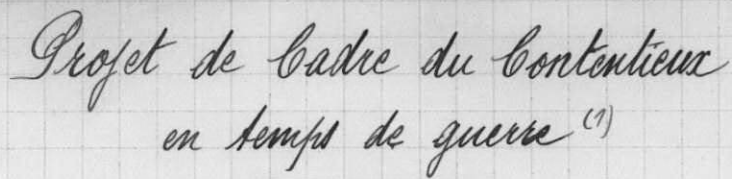 Projet de Cadre du Contentieux
en temps de guerre (1)